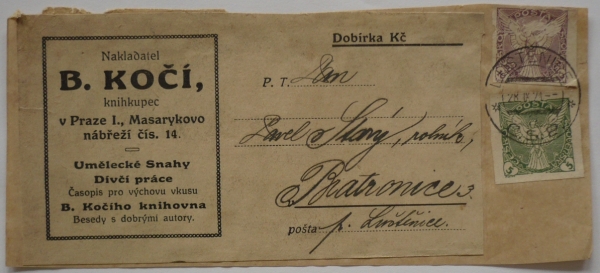 Nakladatel
B. KOČÍ,
knihkupec
v Praze I., Masarykovo
nábřeží čís. 14.
Umělecké Snahy
Dívčí práce
Časopis pro výchovu vkusu
B. Kočího knihovna
Besedy s dobrými autory.
Dobírka Kč
P. T. Pan
Pavel Starý, rolník,
Bratronice
pošta p.
POŠTA
ČSP
POŠTA
5 5